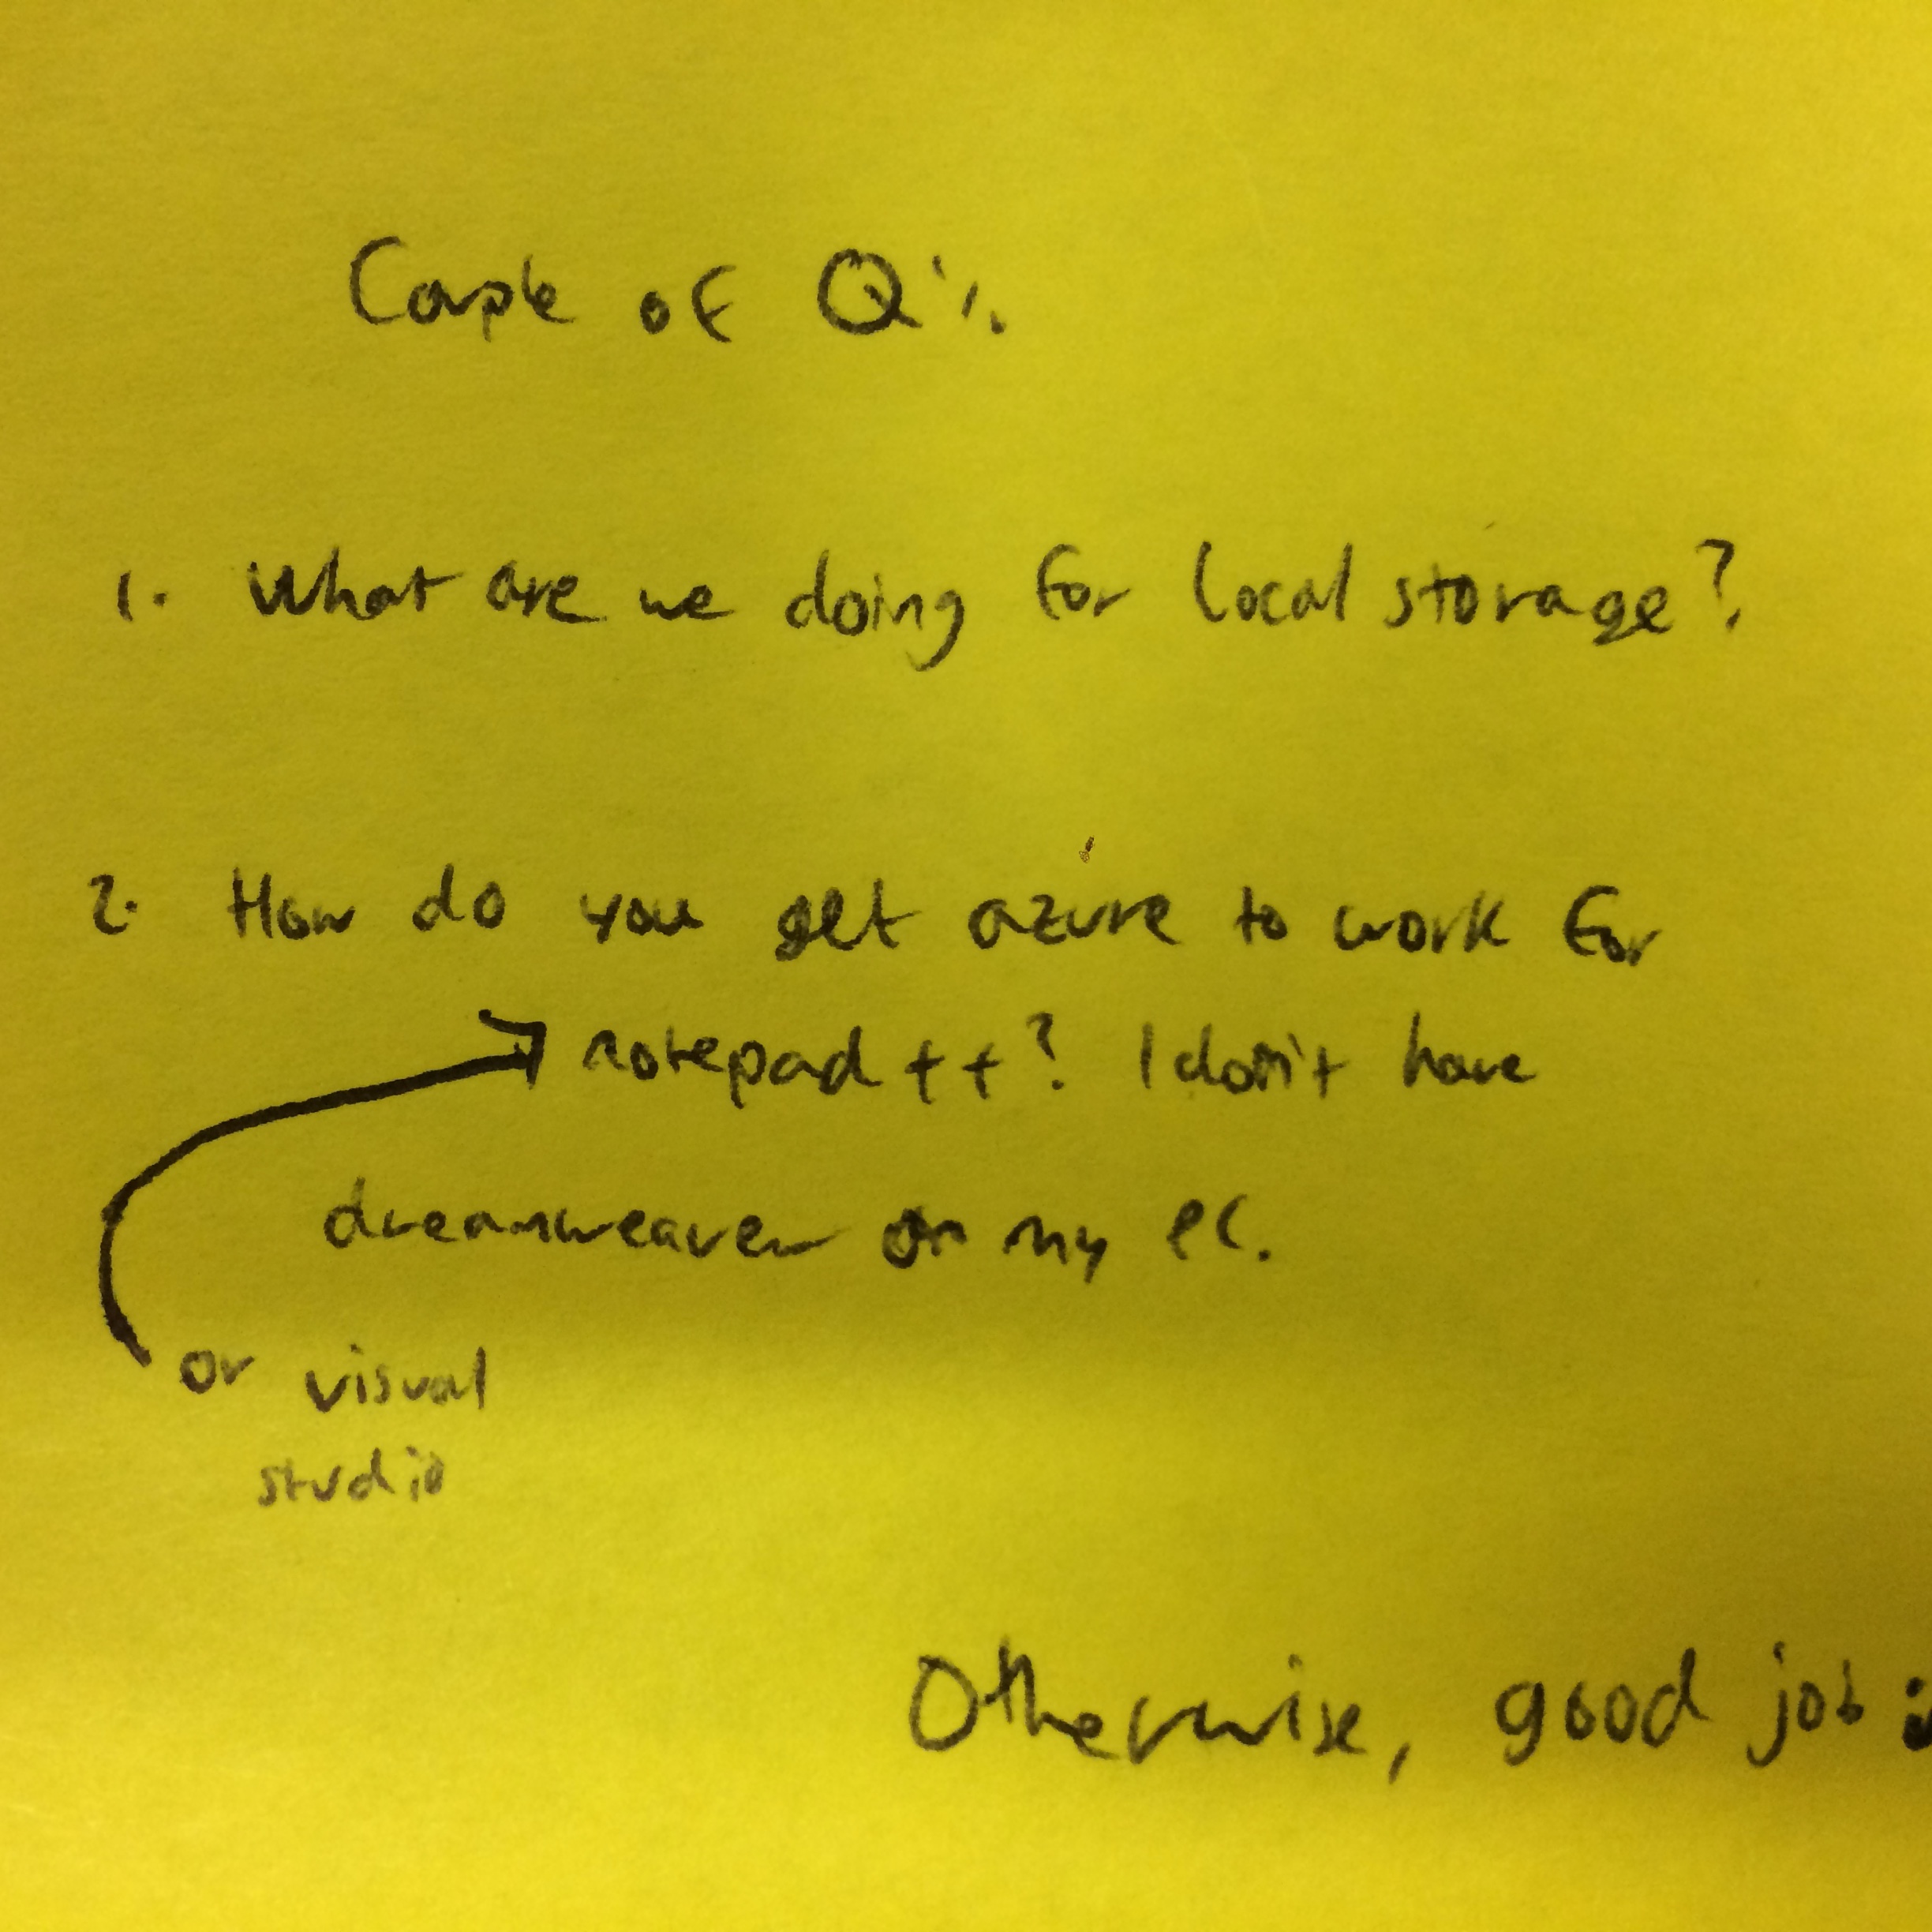 Couple of Q's.
1. What are we doing for local storage?
2. How do you get azure to work for
notepad ++? I don't have
dreamweaver on my PC.
or visual
studio
Otherwise, good job :